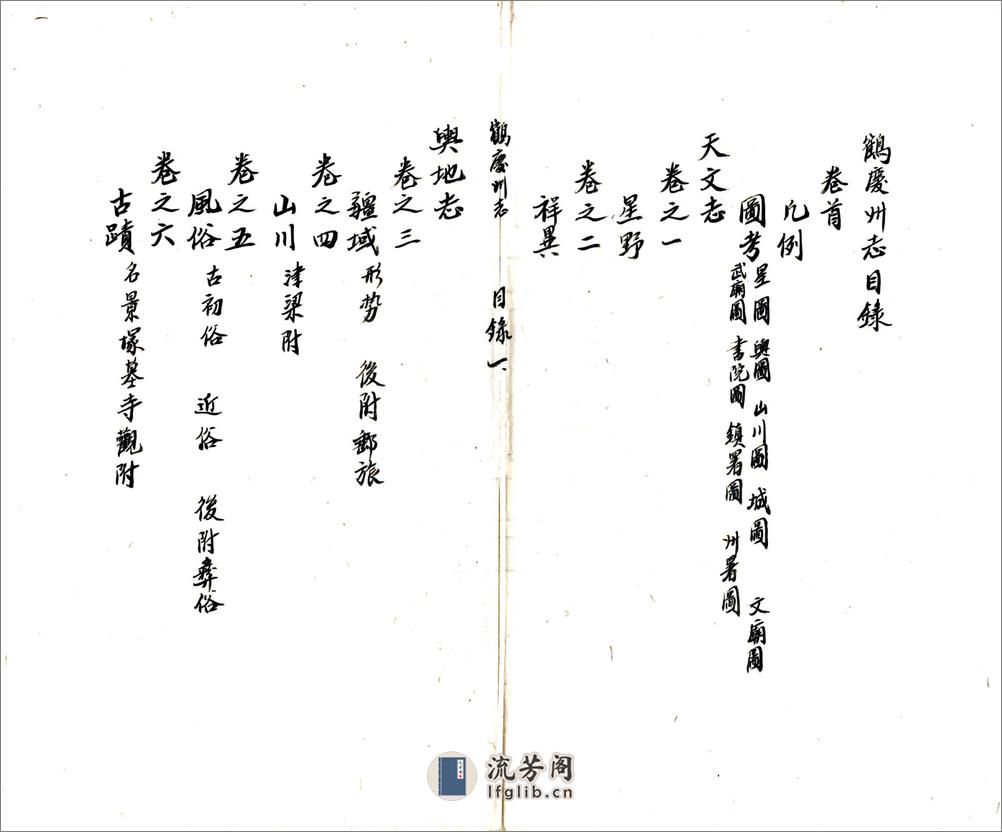 鶴慶州志目錄
卷首
凡例
圖考 星圖 輿圖 山川圖 城圖 文廟圖
武廟圖 書院圖 鎮署圖 州署圖
天文志
卷之一
星野
卷之二
祥異
鶴慶州志 目錄 一
輿地志
卷之三
疆域 形势 後附郵旅
卷之四
山川 津梁附
卷之五
風俗 古初俗 近俗 後附彝俗
卷之六
古蹟 名景塚墓寺觀附
流芳阁
lfglib.cn